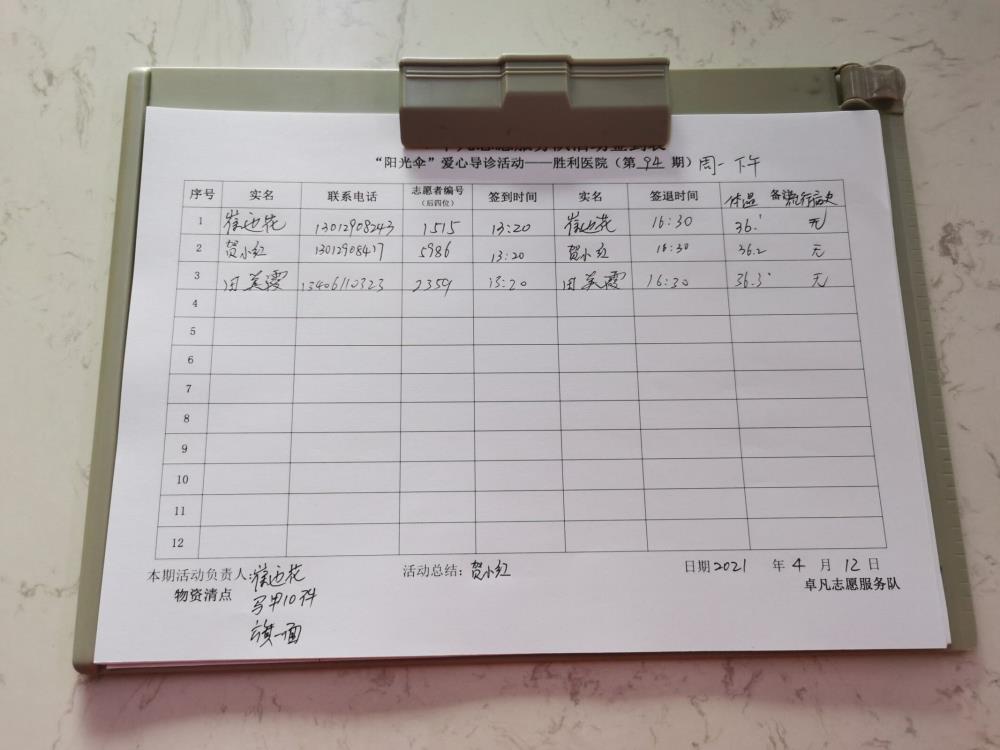 卓凡志愿服务队活动签到表
“阳光伞”爱心导诊活动——胜利医院（第 94 期）周一下午
序号 实名 联系电话 志愿者编号（后四位） 签到时间 实名 签退时间 体温 备注 流行病史
1 崔西花 13012908243 1515 13:20 崔西花 16:30 36.1 无
2 贺小红 13012908417 5986 13:20 贺小红 16:30 36.2 无
3 田美霞 13406110323 2359 13:20 田美霞 16:30 36.3° 无
4
5
6
7
8
9
10
11
12
本期活动负责人:崔西花 活动总结：贺小红 日期2021 年 4 月 12 日
物资清点 马甲10件 卓凡志愿服务队
旗一面